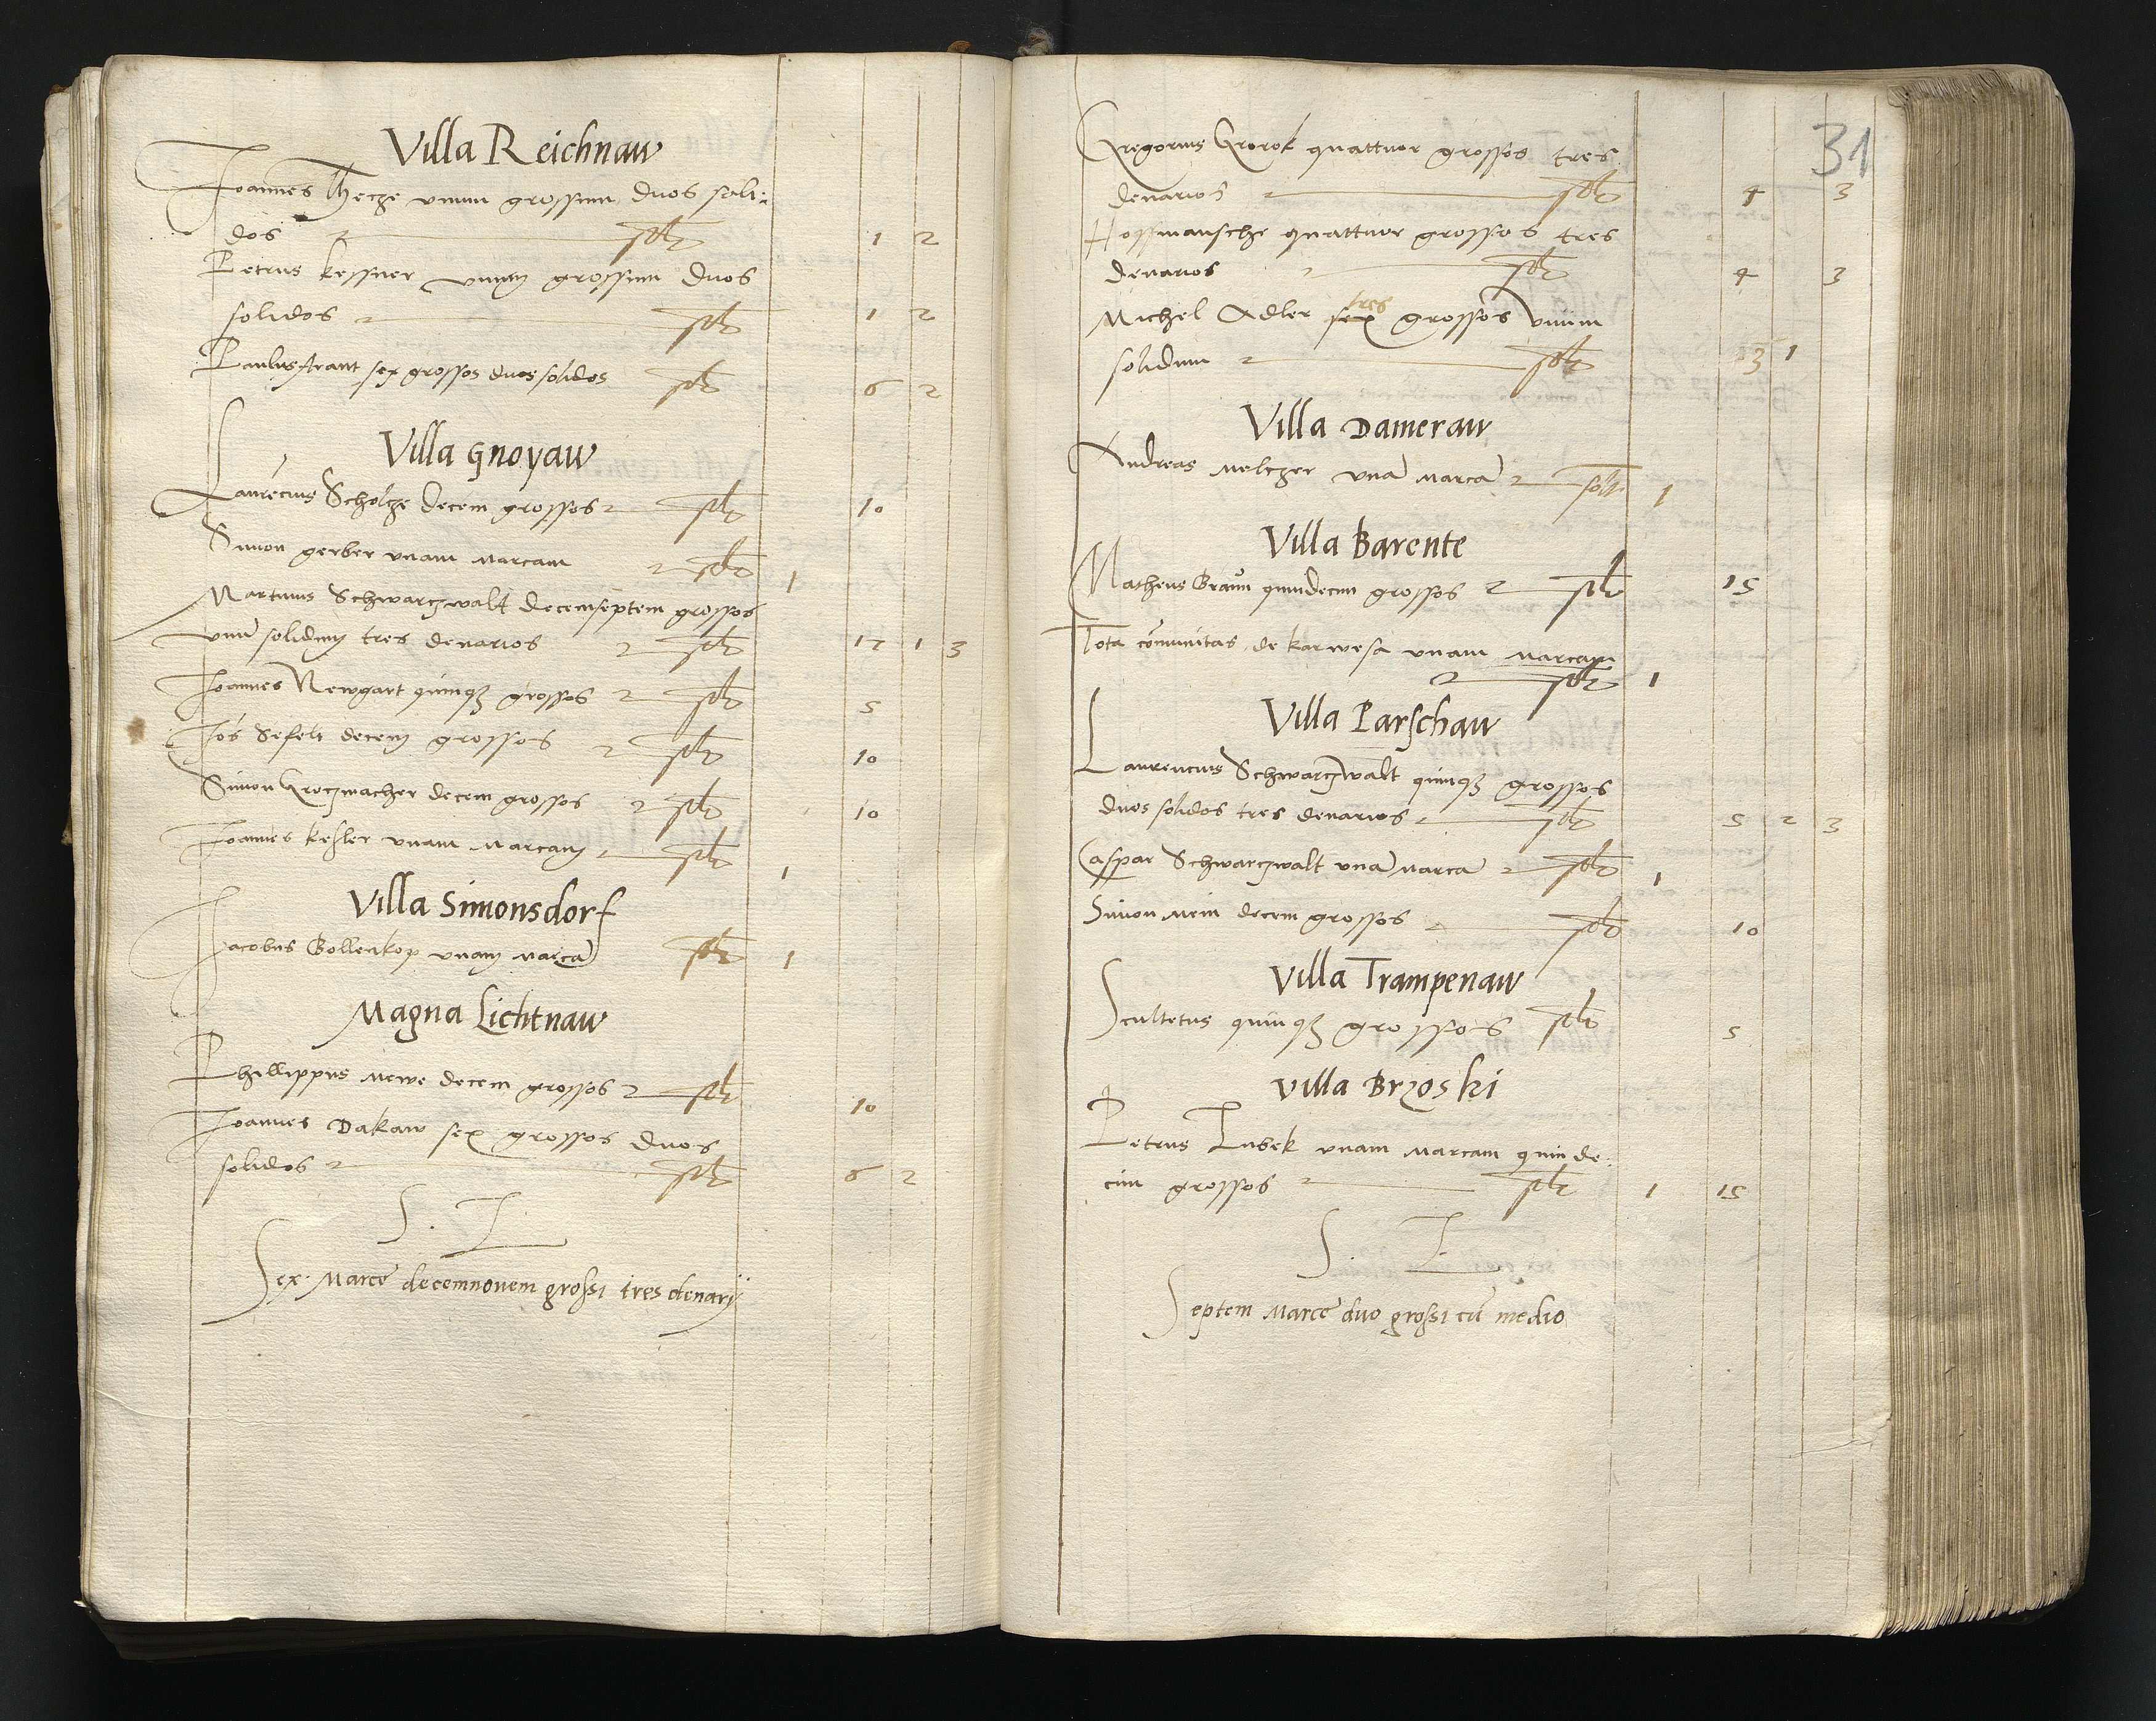 Villa Reichnaw
Joannes Thecze vnum grossum duos soli-
dos 1 2
Petrus kessner vnum grossum duos
solidos 1 2
Paulus strant sex grossos duos solidos 6 2
Villa Gnoyaw
Laurēcius Scholcze decem grossos 10
Simon gerber vnam marcam 1
Martinus Schwarczwalt decemseptem grossos
vnū solidum tres denarios 17 1 3
Joannes Newgart quinqȝ grossos 5
Jos Sefelt decem grossos 10
Simon Groczmacher decem grossos 10
Joannes kesler vnam marcam 1
Villa Simonsdorf
Jacobus Bollenkop vnam marcā 1
Magna Lichtnaw
Phillippus mewe decem grossos 10
Joannes Dakaw sex grossos duos
solidos 6 2
S. L
Sex. Marce decemnouem grossi tres denarij
31
Gregorius Grorok quattuor grossos tres
denarios 4 3
Hossmansche quattuor grossos tres
denarios 4 3
tres
Michel Adler sex grossos vnum
solidum 3 1
Villa Dameraw
Andreas melczer vnā marcā 1
Villa Barente
Matheus Graun quindecim grossos 15
Tota cōmunitas de karwesa vnam marcam
1
Villa Parschaw
Laurencius Schwarczwalt quinqȝ grossos
duos solidos tres denarios 5 2 3
Caspar Schwarczwalt vnā marcā 1
Simon mein decem grossos 10
Villa Trampenaw
Scultetus quinqȝ grossos 5
Villa Brzoski
Petrus Lubek vnam marcam quinde-
cim grossos 1 15
S. L
Septem Marce duo grossi cū medio